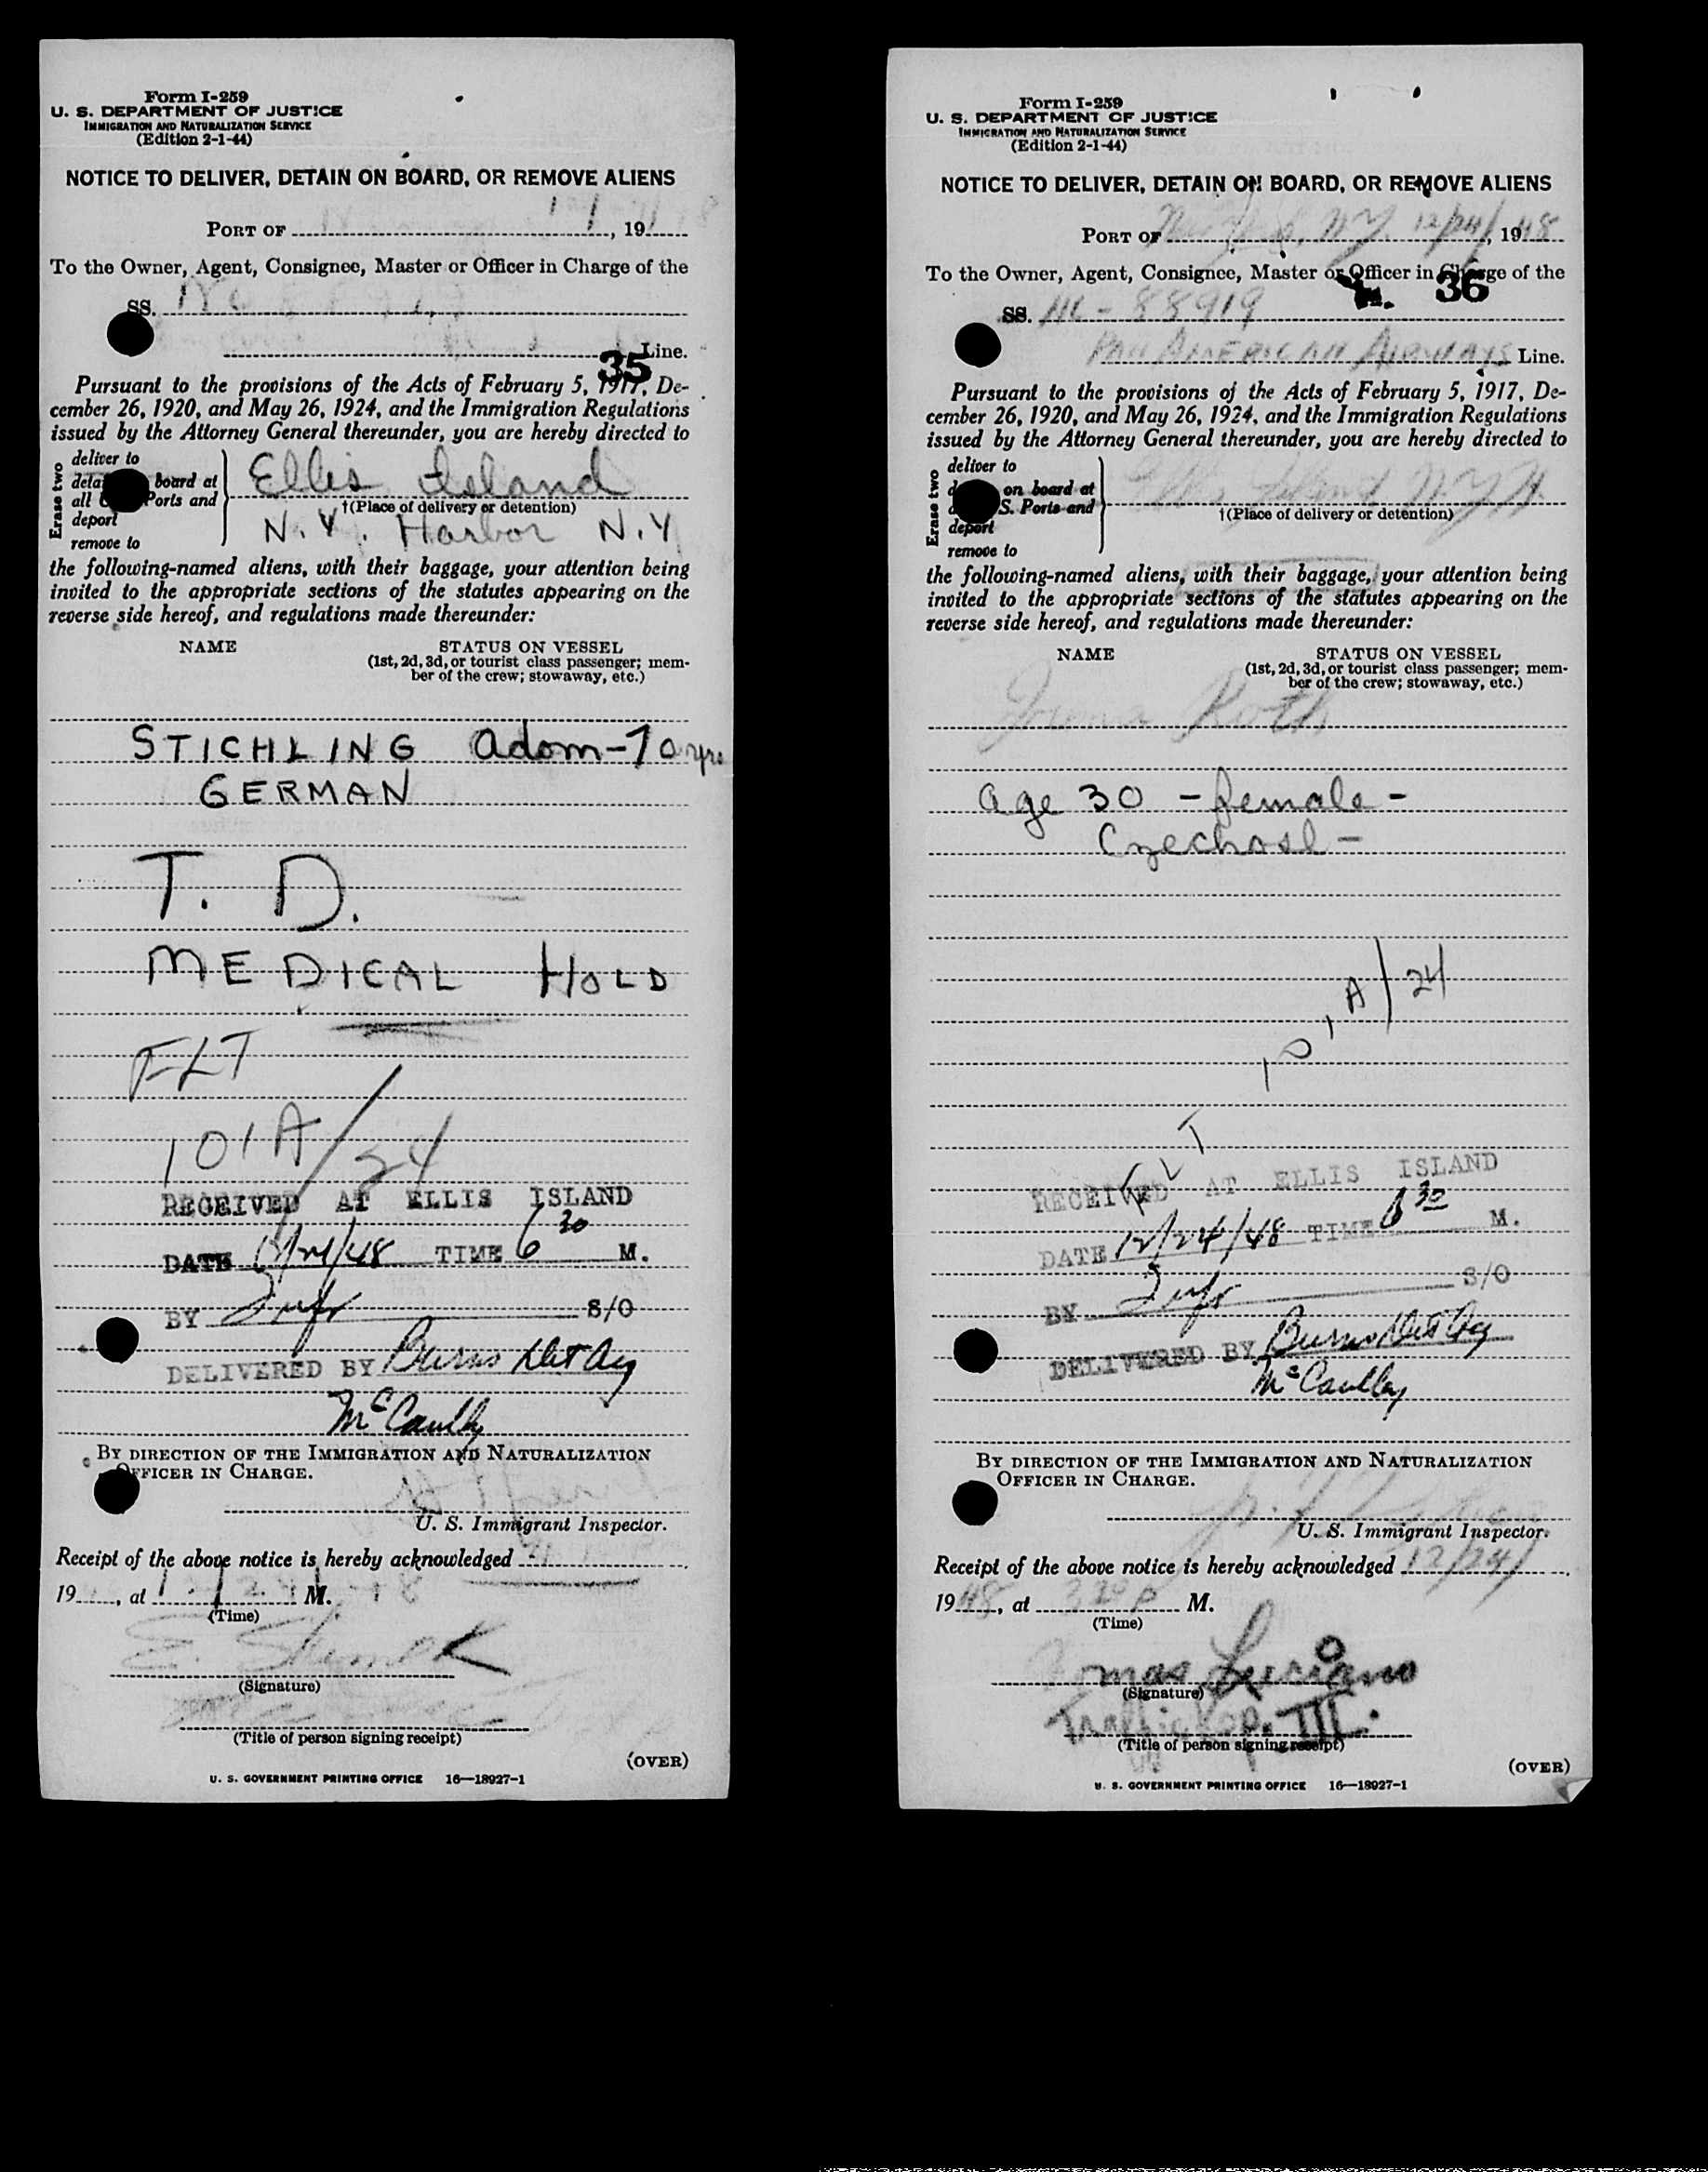 Form I-259
U. S. DEPARTMENT OF JUSTICE
IMMIGRATION AND NATURALIZATION SERVICE
(Edition 2-1-44)
NOTICE TO DELIVER, DETAIN ON BOARD, OR REMOVE ALIENS
PORT OF , 19
To the Owner, Agent, Consignee, Master or Officer in Charge of the
SS.
Line.
35
Pursuant to the provisions of the Acts of February 5, 1917, De-
cember 26, 1920, and May 26, 1924, and the Immigration Regulations
issued by the Attorney General thereunder, you are hereby directed to
Erase two
deliver to
board at
all Ports and
deport
remove to
Ellis Island
†(Place of delivery or detention)
N.Y. Harbor N.Y
the following-named aliens, with their baggage, your attention being
invited to the appropriate sections of the statutes appearing on the
reverse side hereof, and regulations made thereunder:
NAME STATUS ON VESSEL
(1st, 2d, 3d, or tourist class passenger; mem-
ber of the crew; stowaway, etc.)
STICHLING Adom-70 yrs
GERMAN
T. D.
MEDICAL HOLD
FLT
101A/24
RECEIVED AT ELLIS ISLAND
DATE 12/24/48 TIME 6 30 M.
BY S/O
DELIVERED BY Burns Det Ag
McCaully
BY DIRECTION OF THE IMMIGRATION AND NATURALIZATION
OFFICER IN CHARGE.
U. S. Immigrant Inspector.
Receipt of the above notice is hereby acknowledged
19 , at M.
(Time)
(Signature)
(Title of person signing receipt)
(OVER)
U. S. GOVERNMENT PRINTING OFFICE 16—18927-1
Form I-259
U. S. DEPARTMENT OF JUSTICE
IMMIGRATION AND NATURALIZATION SERVICE
(Edition 2-1-44)
NOTICE TO DELIVER, DETAIN ON BOARD, OR REMOVE ALIENS
PORT OF New York, NY 12/24/, 1948
To the Owner, Agent, Consignee, Master or Officer in Charge of the
36
SS. 88919
PAN AMERICAN AIRWAYS Line.
Pursuant to the provisions of the Acts of February 5, 1917, De-
cember 26, 1920, and May 26, 1924, and the Immigration Regulations
issued by the Attorney General thereunder, you are hereby directed to
Erase two
deliver to
on board at
S. Ports and
deport
remove to
Ellis Island N.Y.H.
†(Place of delivery or detention)
the following-named aliens, with their baggage, your attention being
invited to the appropriate sections of the statutes appearing on the
reverse side hereof, and regulations made thereunder:
NAME STATUS ON VESSEL
(1st, 2d, 3d, or tourist class passenger; mem-
ber of the crew; stowaway, etc.)
Roth
Age 30 - female -
Czechosl -
101A/24
FLT
RECEIVED AT ELLIS ISLAND
DATE 12/24/48 TIME 6 30 M.
BY S/O
DELIVERED BY Burns Det Ag
McCaulley
BY DIRECTION OF THE IMMIGRATION AND NATURALIZATION
OFFICER IN CHARGE.
U. S. Immigrant Inspector.
Receipt of the above notice is hereby acknowledged 12/24/
1948, at 3 30 P M.
(Time)
Luciano
(Signature)
Traffic Rep. III.
(Title of person signing receipt)
(OVER)
U. S. GOVERNMENT PRINTING OFFICE 16—18927-1